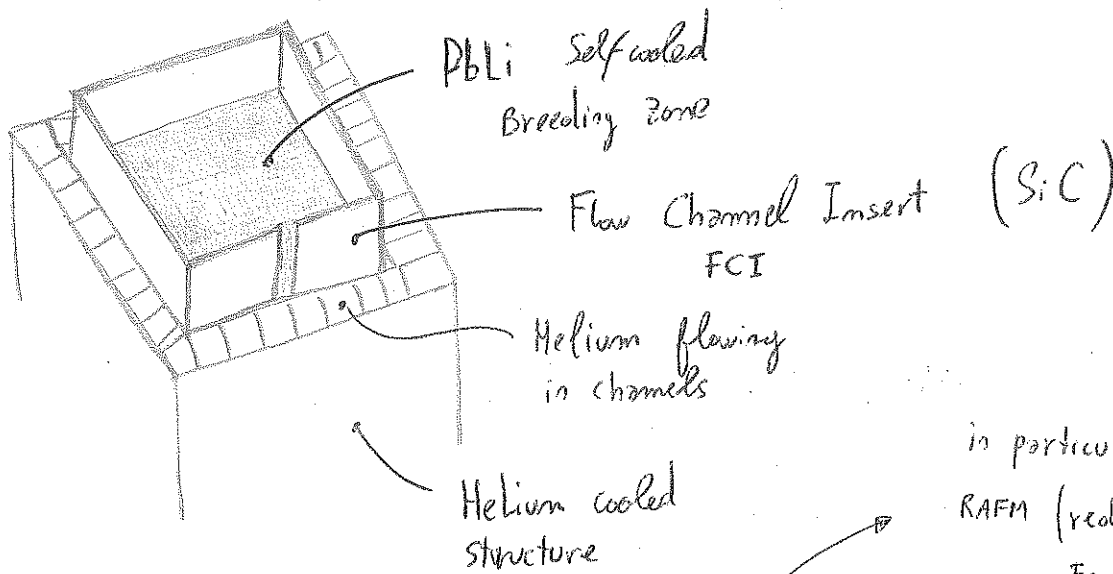 PbLi Self cooled
Breeding zone
Flow Channel Insert (SiC)
FCI
Helium flowing
in channels
Helium cooled
structure
in particu
RAFM (red